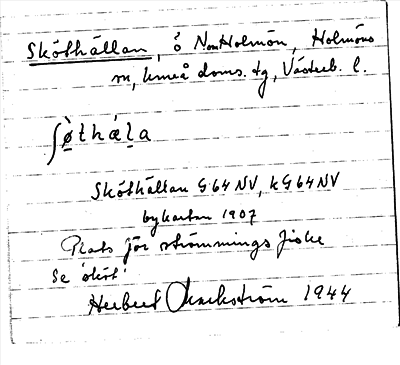 Sköthällan, ö N om Holmön, Holmöns
sn, Umeå doms. tg, Västerb. l.
ʃø̀thála
Sköthällan G64NV, kG64NV
bykartan 1907
Plats för strömmingsfiske
Se 'sköt'
Herbert Markström 1944